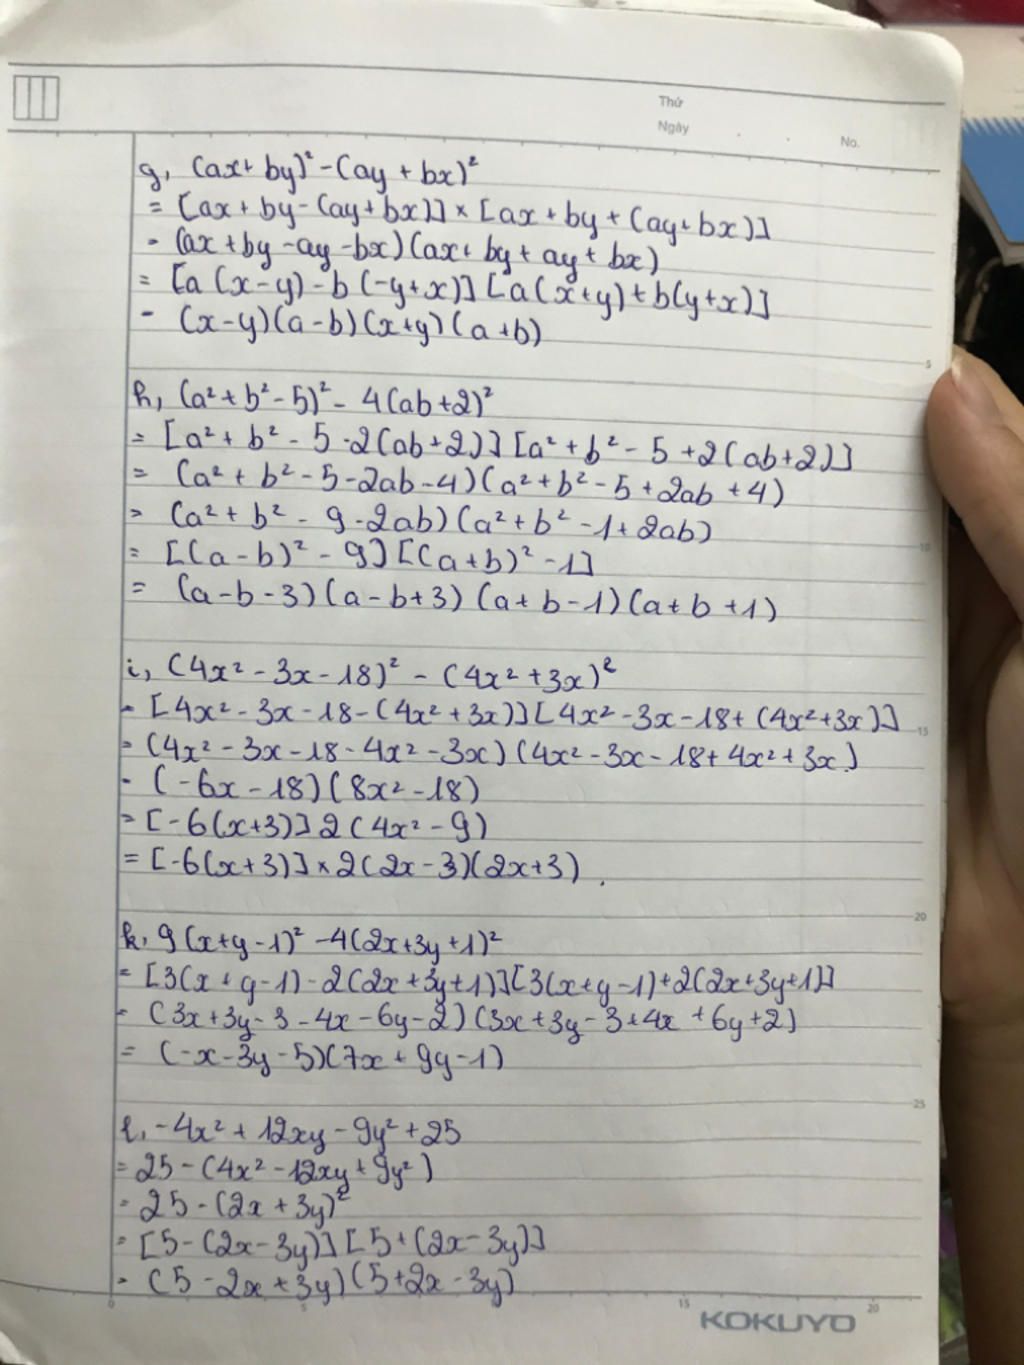 Thứ
Ngày
No.
g, (ax+ by)² - (ay + bx)²
= [ax + by - (ay + bx)] × [ax + by + (ay + bx)]
- (ax + by - ay - bx) (ax + by + ay + bx)
= [a (x - y) - b (-y + x)] [a(x + y) + b(y + x)]
- (x - y) (a - b) (x + y) (a + b)
5
h, (a² + b² - 5)² - 4(ab + 2)²
= [a² + b² - 5 - 2(ab + 2)] [a² + b² - 5 + 2(ab + 2)]
= (a² + b² - 5 - 2ab - 4) (a² + b² - 5 + 2ab + 4)
= (a² + b² - 9 - 2ab) (a² + b² - 1 + 2ab)
10
= [(a - b)² - 9] [(a + b)² - 1]
= (a - b - 3) (a - b + 3) (a + b - 1) (a + b + 1)
i, (4x² - 3x - 18)² - (4x² + 3x)²
- [4x² - 3x - 18 - (4x² + 3x)] [4x² - 3x - 18 + (4x² + 3x)]
15
= (4x² - 3x - 18 - 4x² - 3x) (4x² - 3x - 18 + 4x² + 3x)
- (-6x - 18) (8x² - 18)
= [-6(x + 3)] 2 (4x² - 9)
= [-6(x + 3)] × 2 (2x - 3)(2x + 3) .
20
k, 9 (x + y - 1)² - 4(2x + 3y + 1)²
= [3(x + y - 1) - 2(2x + 3y + 1)] [3(x + y - 1) + 2(2x + 3y + 1)]
- (3x + 3y - 3 - 4x - 6y - 2) (3x + 3y - 3 + 4x + 6y + 2)
= (-x - 3y - 5)(7x + 9y - 1)
25
l, -4x² + 12xy - 9y² + 25
= 25 - (4x² - 12xy + 9y²)
- 25 - (2x + 3y)²
= [5 - (2x - 3y)] [5 + (2x - 3y)]
- (5 - 2x + 3y) (5 + 2x - 3y)
0 5 15 20
KOKUYO